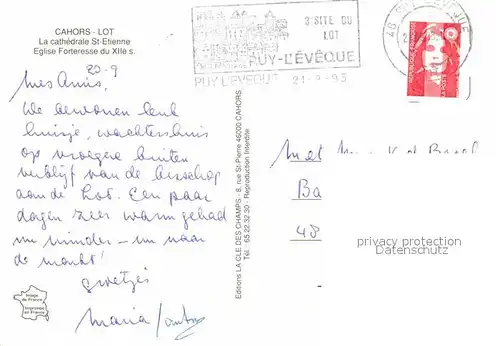 CAHORS - LOT
La cathédrale St-Etienne
Eglise Forteresse du XIIe s.
20-9
We bewonen leuk
huisje, wachtershuis
op vroegere buiten
verblijf van de bisschop
aan de Lot. Een paar
dagen zeer warm gehad
nu minder - nu naar
de markt!
groetjes
Maria
Image
de France
Imprimée
en France
Editions LA CLE DES CHAMPS - 8, rue St-Pierre 46000 CAHORS
Tél : 65.22.32.30 - Reproduction Interdite
SITE DU
LOT
PUY-L'ÉVÊQUE
PUY L'EVEQUE 21-9-93
46 PUY L'EVEQUE
REPUBLIQUE FRANÇAISE
Ba
48
privacy protection
Datenschutz